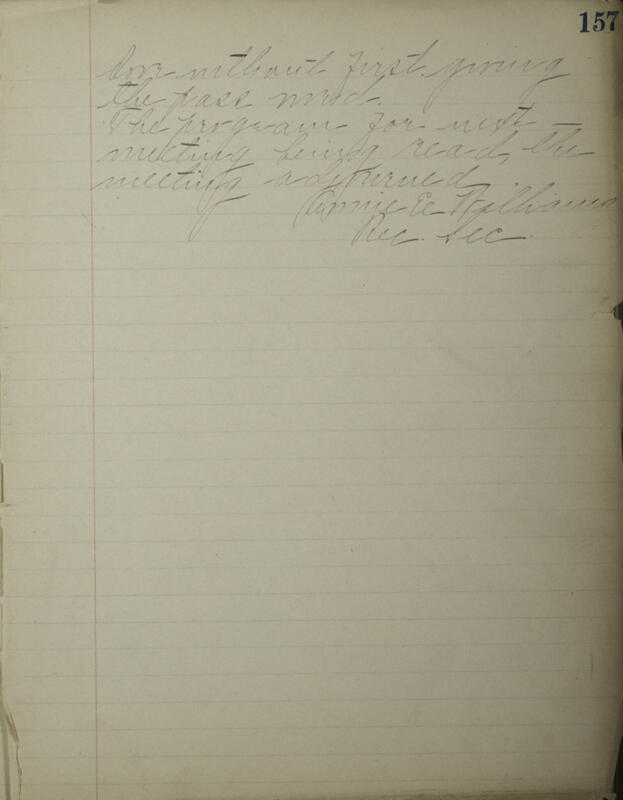 157
door without first giving
the pass word.
The program for next
meeting being read, the
meeting adjourned.
Annie E. Williams
Rec. Sec.